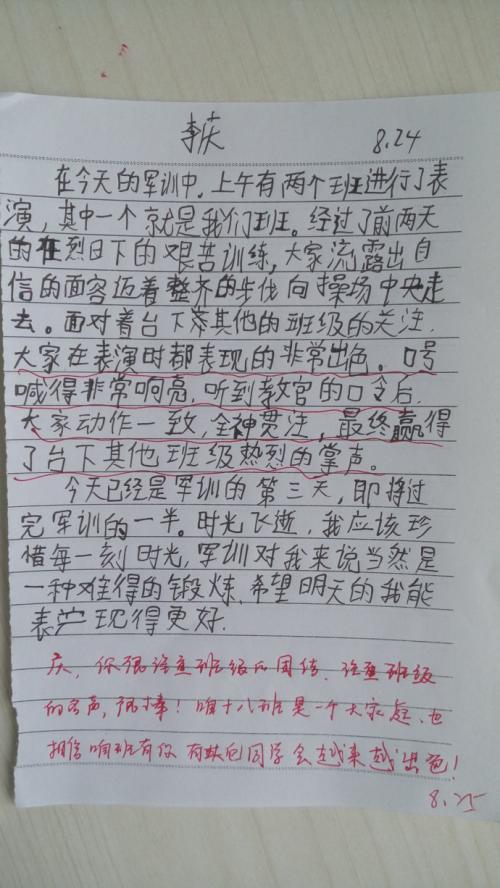 李庆 8.24
在今天的军训中,上午有两个班进行了表
演,其中一个就是我们班。经过了前两天
的在烈日下的艰苦训练,大家流露出自
信的面容迈着整齐的步伐向操场中央走
去。面对着台下其他的班级的关注,
大家在表演时都表现的非常出色。口号
喊得非常响亮,听到教官的口令后,
大家动作一致,全神贯注,最终赢得
了台下其他班级热烈的掌声。
今天已经是军训的第三天,即将过
完军训的一半。时光飞逝,我应该珍
惜每一刻时光,军训对我来说当然是
一种难得的锻炼,希望明天的我能
表现得更好.
庆,你很注重班级的团结,注重班级
的名声,很棒!咱十八班是一个大家庭,也
相信咱班有你 同学会越来越出色!
8.25